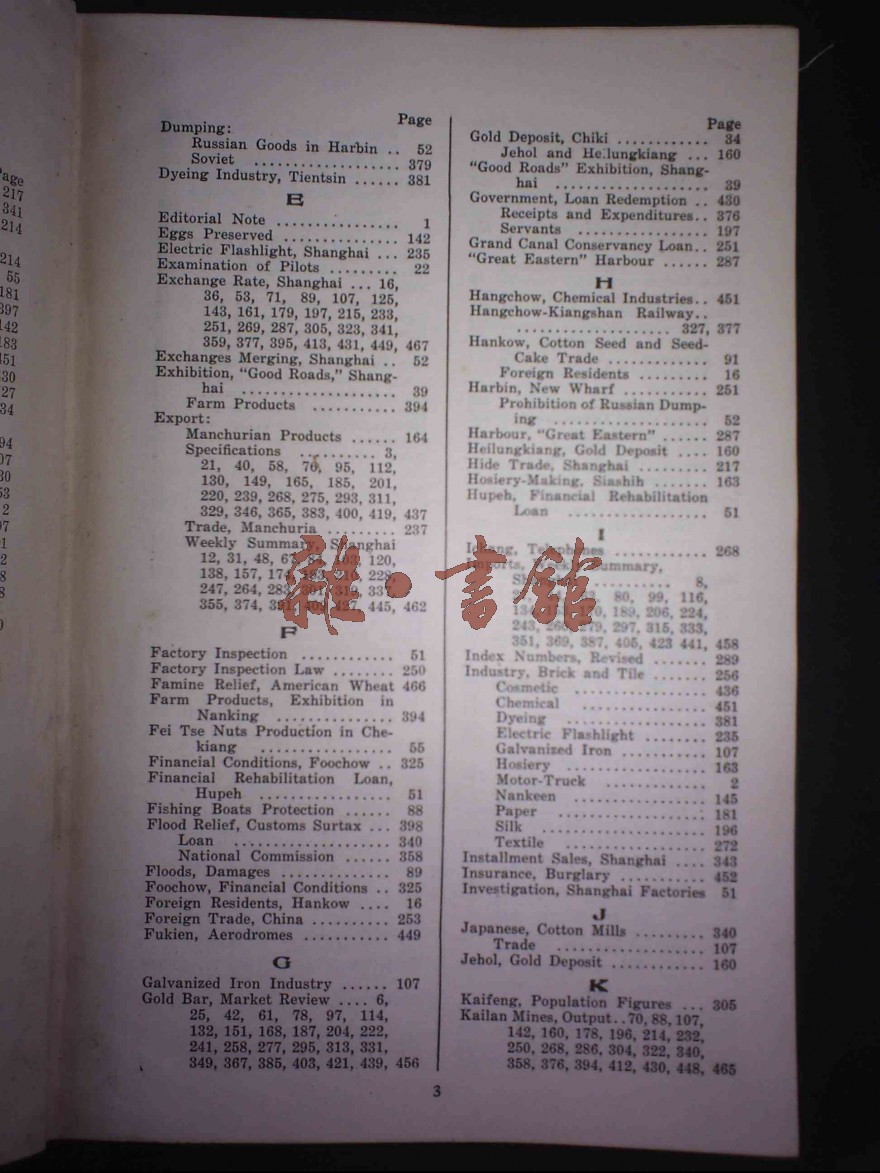 age
217
341
214
214
55
181
397
142
183
451
30
27
34
94
07
30
53
2
7
1
2
8
8
Page
Dumping:
Russian Goods in Harbin .. 52
Soviet ................. 379
Dyeing Industry, Tientsin ...... 381
E
Editorial Note ................ 1
Eggs Preserved ............... 142
Electric Flashlight, Shanghai ... 235
Examination of Pilots ......... 22
Exchange Rate, Shanghai ... 16,
36, 53, 71, 89, 107, 125,
143, 161, 179, 197, 215, 233,
251, 269, 287, 305, 323, 341,
359, 377, 395, 413, 431, 449, 467
Exchanges Merging, Shanghai .. 52
Exhibition, "Good Roads," Shang-
hai .................... 39
Farm Products ........... 394
Export:
Manchurian Products ...... 164
Specifications .......... 3,
21, 40, 58, 76, 95, 112,
130, 149, 165, 185, 201,
220, 239, 268, 275, 293, 311,
329, 346, 365, 383, 400, 419, 437
Trade, Manchuria ......... 237
Weekly Summary, Shanghai
12, 31, 48, 67, 84, 103, 120,
138, 157, 174, 193, 210, 228,
247, 264, 283, 301, 319, 337,
355, 374, 391, 409, 427, 445, 462
F
Factory Inspection ............ 51
Factory Inspection Law ........ 250
Famine Relief, American Wheat 466
Farm Products, Exhibition in
Nanking ............... 394
Fei Tse Nuts Production in Che-
kiang ................. 55
Financial Conditions, Foochow .. 325
Financial Rehabilitation Loan,
Hupeh ................. 51
Fishing Boats Protection ...... 88
Flood Relief, Customs Surtax ... 398
Loan .................... 340
National Commission ...... 358
Floods, Damages .............. 89
Foochow, Financial Conditions .. 325
Foreign Residents, Hankow .... 16
Foreign Trade, China .......... 253
Fukien, Aerodromes ........... 449
G
Galvanized Iron Industry ...... 107
Gold Bar, Market Review .... 6,
25, 42, 61, 78, 97, 114,
132, 151, 168, 187, 204, 222,
241, 258, 277, 295, 313, 331,
349, 367, 385, 403, 421, 439, 456
Page
Gold Deposit, Chiki ............ 34
Jehol and Heilungkiang ... 160
"Good Roads" Exhibition, Shang-
hai .................... 39
Government, Loan Redemption .. 430
Receipts and Expenditures.. 376
Servants ................. 197
Grand Canal Conservancy Loan.. 251
"Great Eastern" Harbour ...... 287
H
Hangchow, Chemical Industries.. 451
Hangchow-Kiangshan Railway..
.................... 327, 377
Hankow, Cotton Seed and Seed-
Cake Trade ............. 91
Foreign Residents ......... 16
Harbin, New Wharf ........... 251
Prohibition of Russian Dump-
ing ...................... 52
Harbour, "Great Eastern" ...... 287
Heilungkiang, Gold Deposit .... 160
Hide Trade, Shanghai ......... 217
Hosiery-Making, Siashih ....... 163
Hupeh, Financial Rehabilitation
Loan .................. 51
I
Ichang, Telephones ............ 268
Imports, Weekly Summary,
Shanghai 8,
80, 99, 116,
189, 206, 224,
297, 315, 333,
351, 369, 387, 405, 423 441, 458
Index Numbers, Revised ....... 289
Industry, Brick and Tile ....... 256
Cosmetic ................. 436
Chemical ................ 451
Dyeing .................. 381
Electric Flashlight ........ 235
Galvanized Iron .......... 107
Hosiery .................. 163
Motor-Truck ............. 2
Nankeen ................. 145
Paper ................... 181
Silk ..................... 196
Textile .................. 272
Installment Sales, Shanghai .... 343
Insurance, Burglary ........... 452
Investigation, Shanghai Factories 51
J
Japanese, Cotton Mills ......... 340
Trade ................... 107
Jehol, Gold Deposit ............ 160
K
Kaifeng, Population Figures ... 305
Kailan Mines, Output..70, 88, 107,
142, 160, 178, 196, 214, 232,
250, 268, 286, 304, 322, 340,
358, 376, 394, 412, 430, 448, 465
3
雜·書館